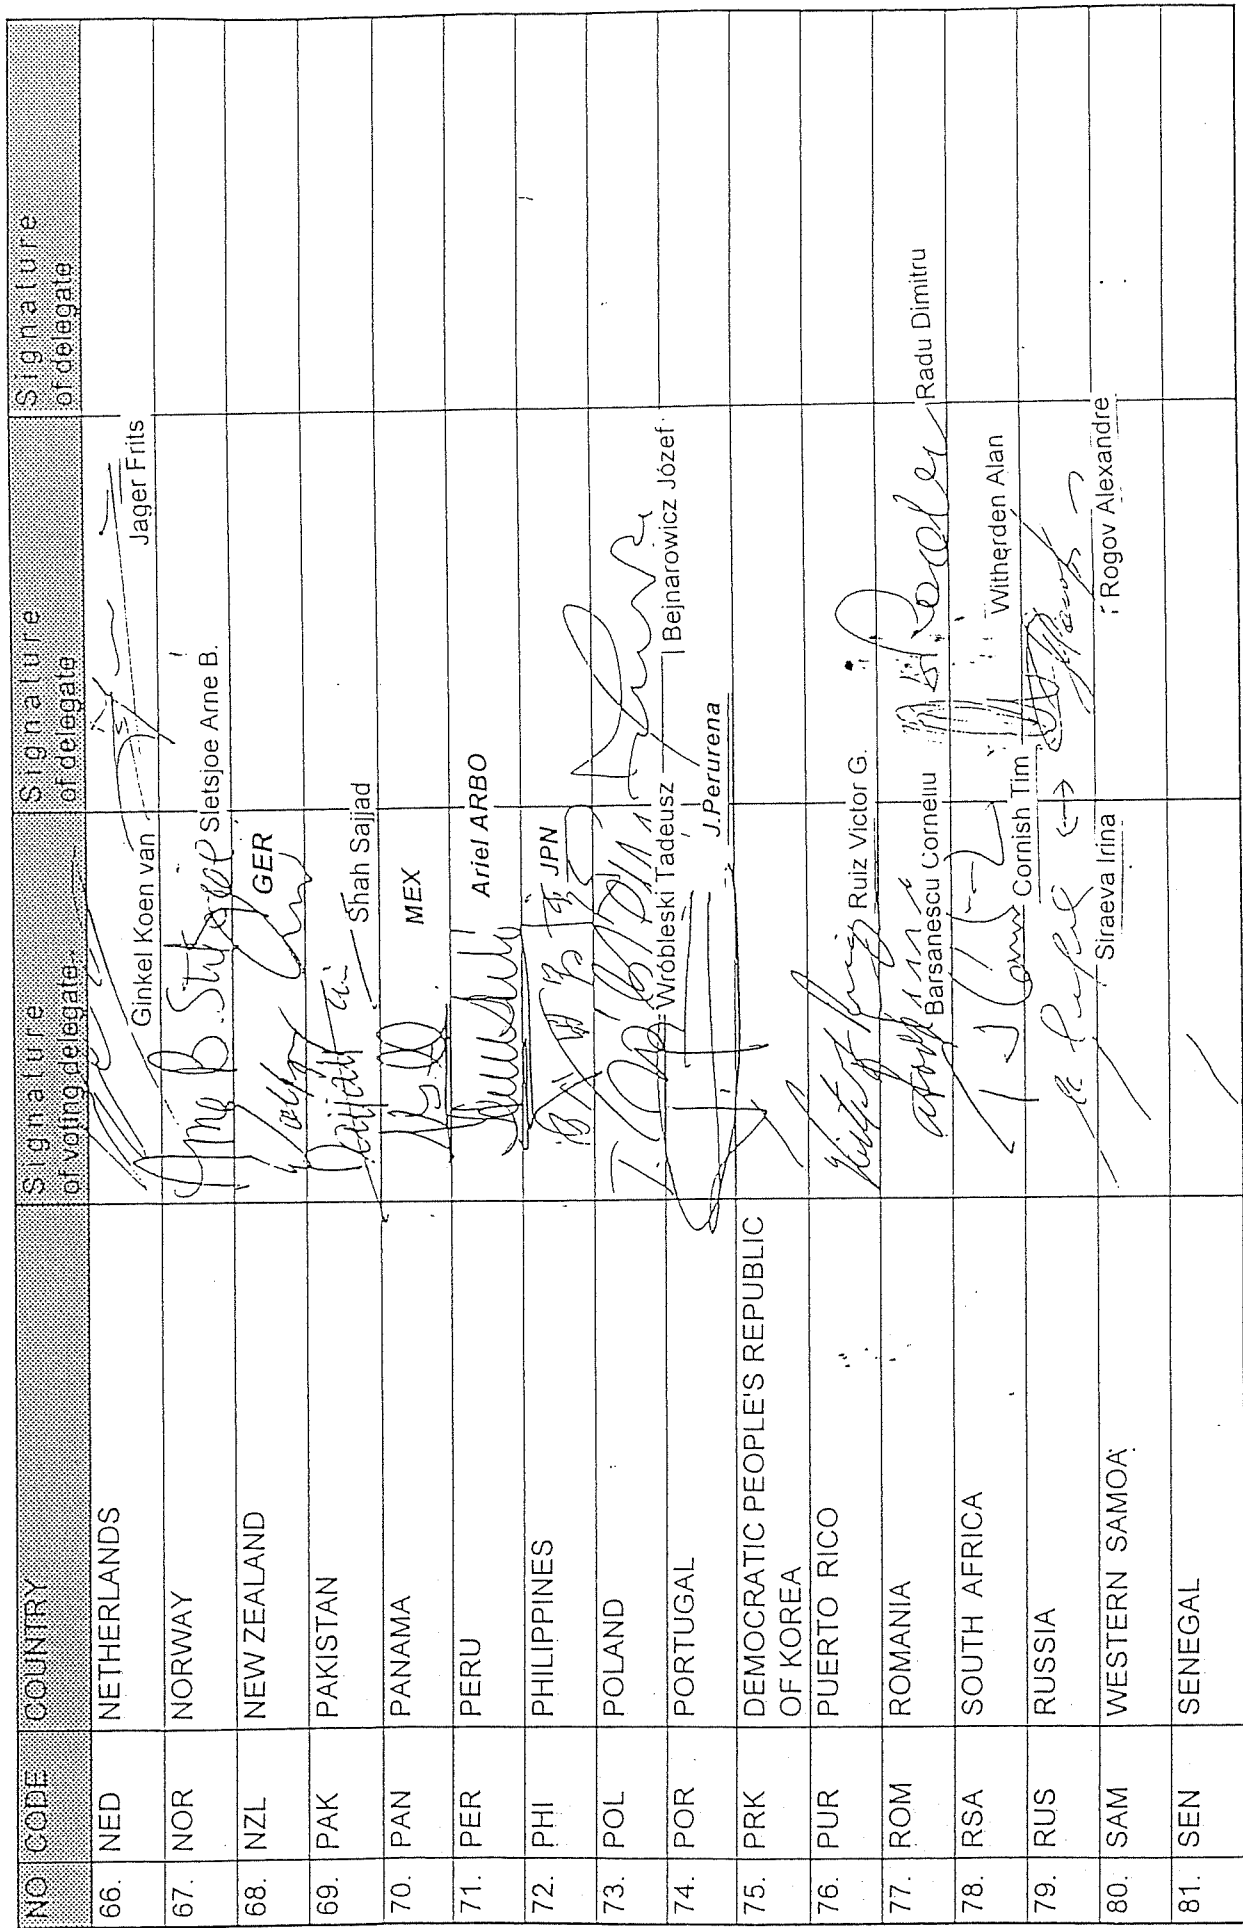 NO CODE COUNTRY Signature of voting delegate Signature of delegate Signature of delegate
66. NED NETHERLANDS Ginkel Koen van Jager Frits
67. NOR NORWAY Sletsjoe Arne B.
68. NZL NEW ZEALAND GER
69. PAK PAKISTAN Shah Sajjad
70. PAN PANAMA MEX
71. PER PERU Ariel ARBO
72. PHI PHILIPPINES JPN
73. POL POLAND Wróbleski Tadeusz Bejnarowicz Józef
74. POR PORTUGAL J.Perurena
75. PRK DEMOCRATIC PEOPLE'S REPUBLIC
OF KOREA
76. PUR PUERTO RICO Ruiz Victor G.
77. ROM ROMANIA Barsanescu Corneliu Radu Dimitru
78. RSA SOUTH AFRICA Cornish Tim Witherden Alan
79. RUS RUSSIA Siraeva Irina Rogov Alexandre
80. SAM WESTERN SAMOA
81. SEN SENEGAL